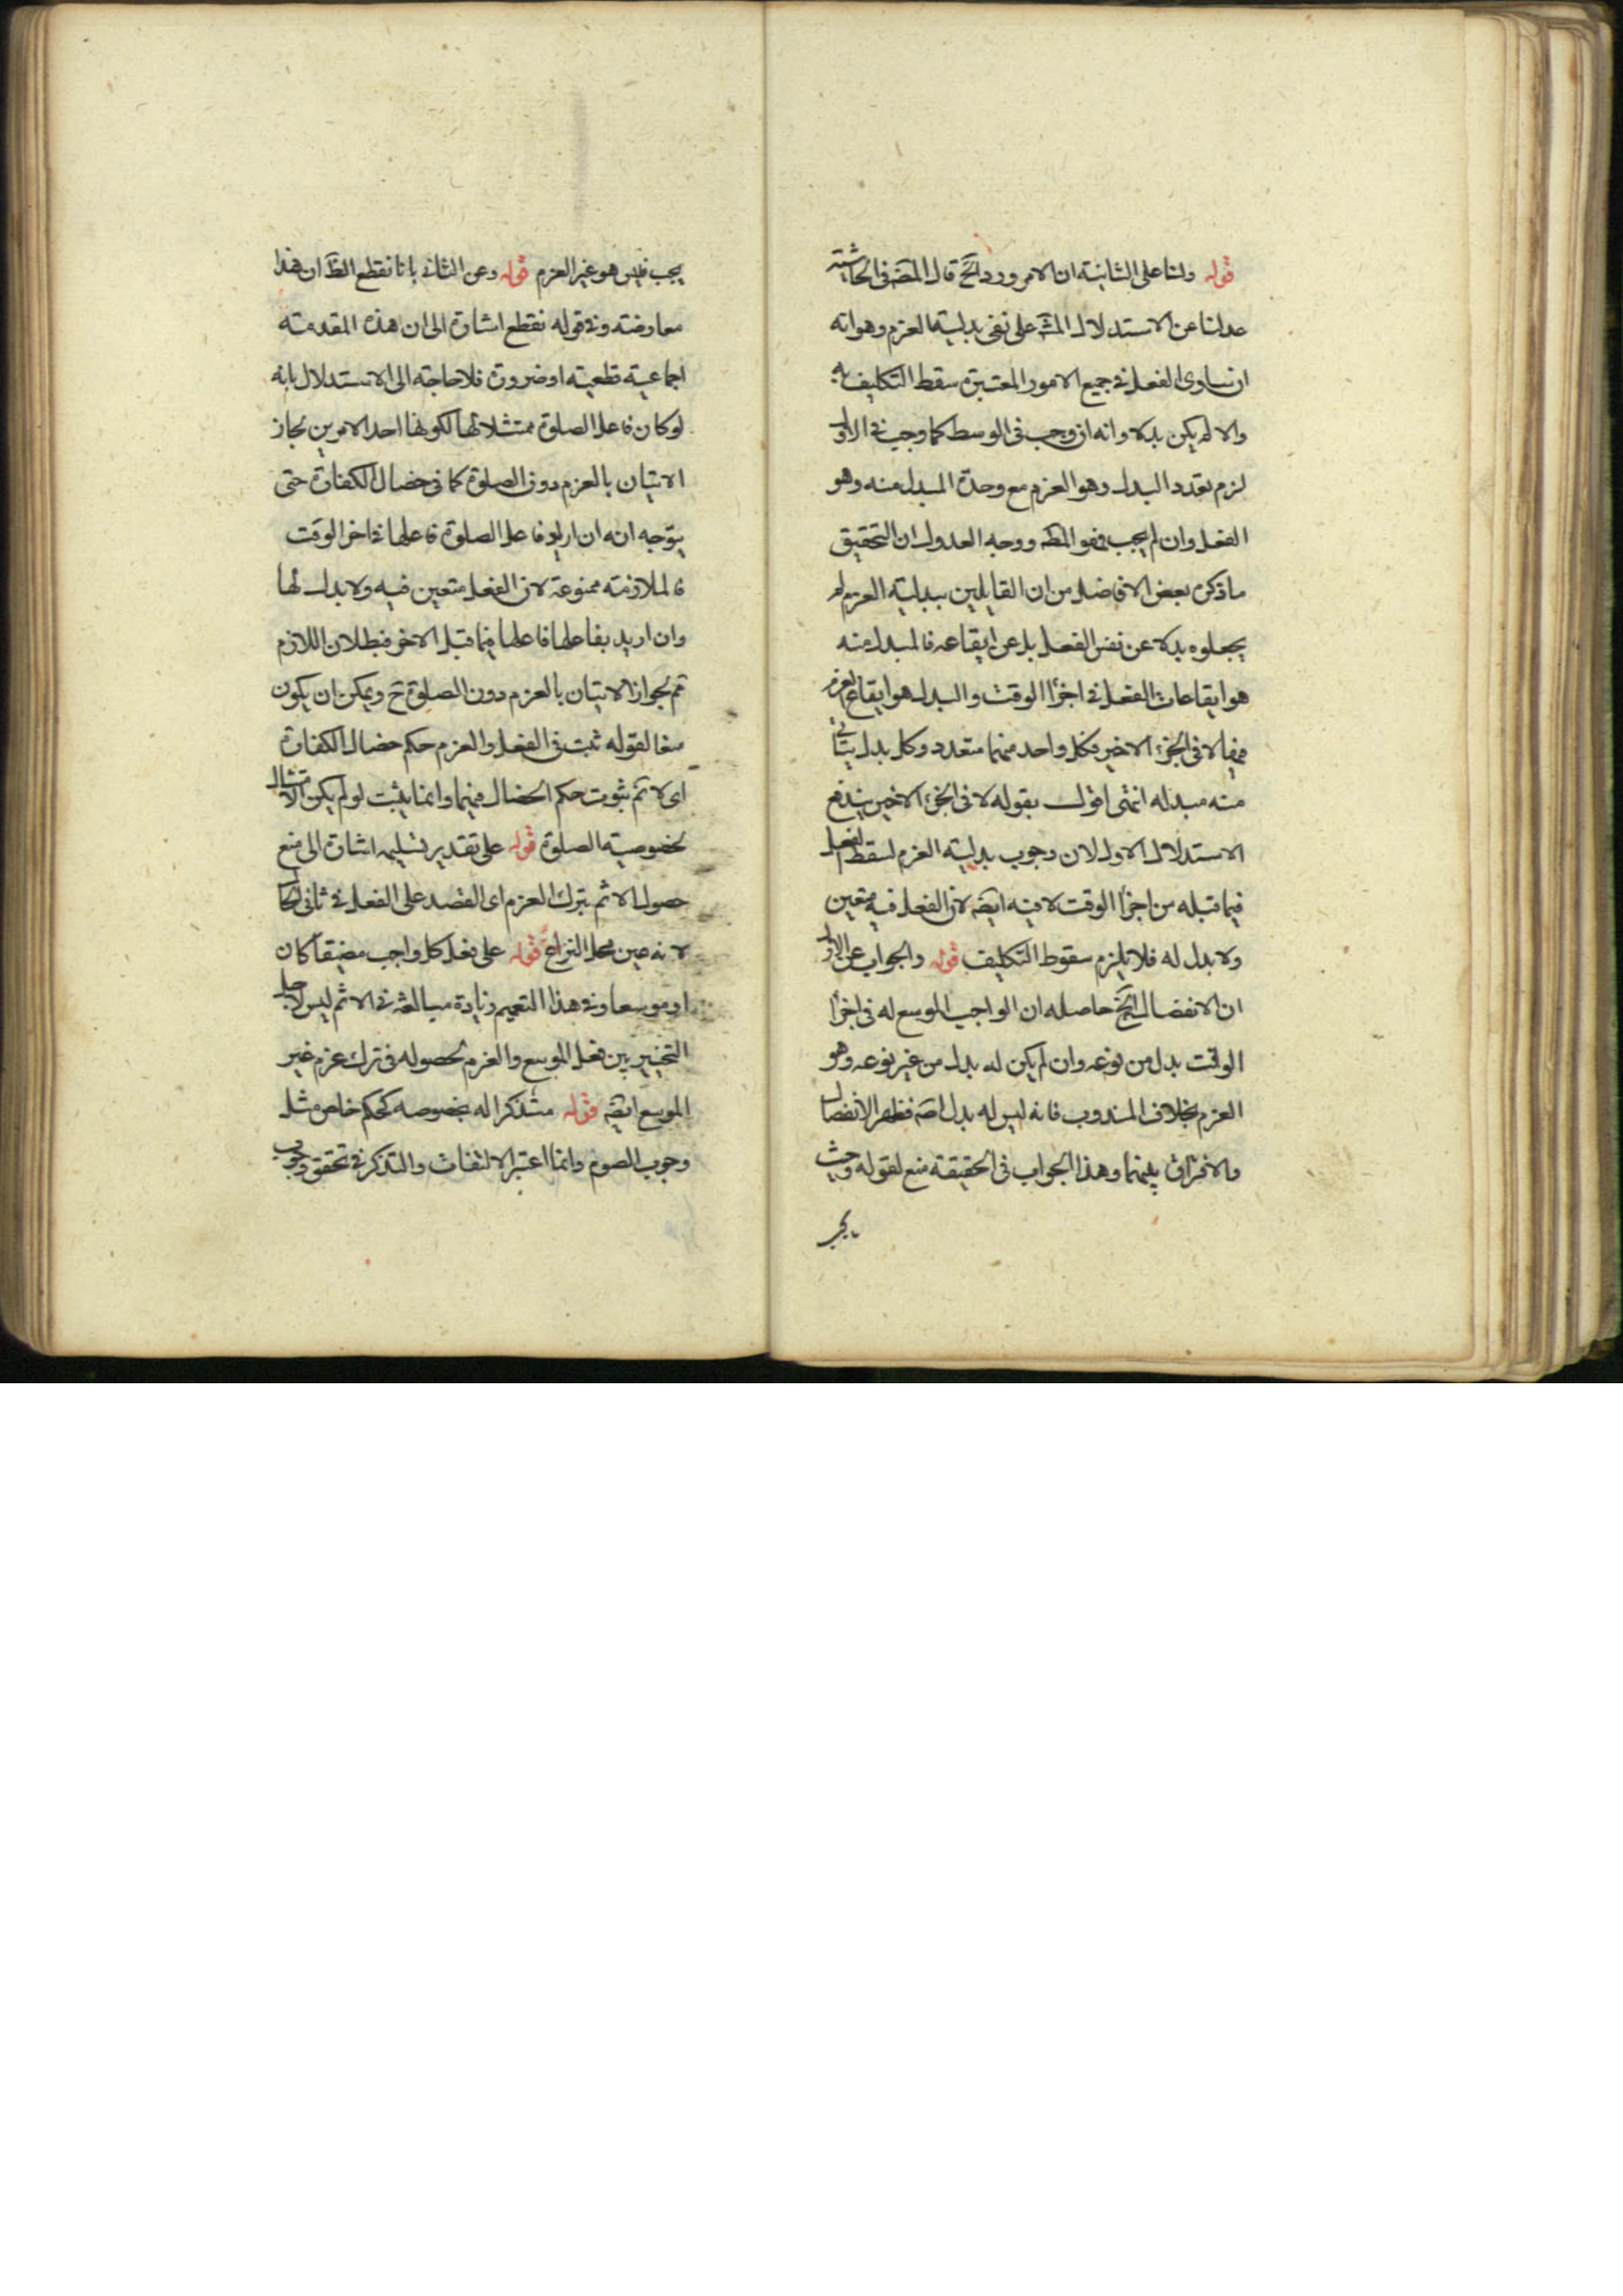 قوله ولنا على الثانية ان الامر ورد الخ قال المصَ في الحاشية
عدلنا عن الاستدلال المشَ على نفي بدلية العزم وهو انه
ان ساوى الفعل في جميع الامور المعتبرة سقط التكليف به
والا لم يكن بدلا وانه ان وجب في الوسط كما وجب في الاول
لزم تعدد البدل وهو العزم مع وحدة المبدل منه وهو
الفعل وان لم يجب فهو المطَ ووجه العدول ان التحقيق
ما ذكره بعض الافاضل من ان القايلين ببدلية العزم لم
يجعلوه بدلا عن نفس الفعل بل عن ايقاعه فالمبدل منه
هو ايقاعات الفعل في اجزأ الوقت والبدل هو ايقاع العزم
فيها لا في الجزء الاخير فكل واحد منهما متعدد وكل بدل يتأتى
منه مبدله انتهى اقول بقوله لا في الجزء الاخير يندفع
الاستدلال الاول لان وجوب بدلية العزم لسقط الفعل
فيما قبله من اجزأ الوقت لا فيه ايضَ لان الفعل فيه متعين
ولا بدل له فلا يلزم سقوط التكليف قوله والجواب عن الاول
ان الانفصال الخ حاصله ان الواجب الموسع له في اجزأ
الوقت بدل من نوعه وان لم يكن له بدل من غير نوعه وهو
العزم بخلاف المندوب فانه ليس له بدل اصَ فظهر الانفصال
والافتراق بينهما وهذا الجواب في الحقيقة منع لقوله وحيث
يجب
يجب فليس هو غير العزم قوله وعن الثاني بانا نقطع الظَ ان هذا
معارضته وفي قوله نقطع اشارة الى ان هذه المقدمته
اجماعية قطعية او ضرورة فلا حاجته الى الاستدلال بانه
لو كان فاعل الصلوة ممتثلا لها لكونها احد الامرين لجاز
الاتيان بالعزم دون الصلوة كما في خصال الكفارة حتى
يتوجه انه ان اريد فاعل الصلوة فاعلها في اخر الوقت
فالملازمته ممنوعة لان الفعل متعين فيه ولا بدل لها
وان اريد بفاعلها فاعلها فيما قبل الاخر فبطلان اللازم
مَم لجواز الاتيان بالعزم دون الصلوة حَ ويمكن ان يكون
منعا لقوله ثبت في الفعل والعزم حكم خصال الكفارة
اى لا تَم ثبوت حكم الخصال فيهما وانما يثبت لو لم يكن الامتثال
لخصوصية الصلوة قوله على تقدير تسليمه اشارة الى منع
حصول الاثم بترك العزم اى القصد على الفعل في ثاني الحال
لانه عين محل النزاع قوله على فعل كل واجب مضيقا كان
او موسعا وفي هذا التعميم زيادة مبالغة في الاثم ليس لاجل
التخيير بين فعل الموسع والعزم لحصوله في ترك عزم غير
الموسع ايضَ قوله متذكرا له بخصوصه كحكم خاص مثل
وجوب الصوم وانما اعتبر الالتفات والتذكر في تحقق وجوب